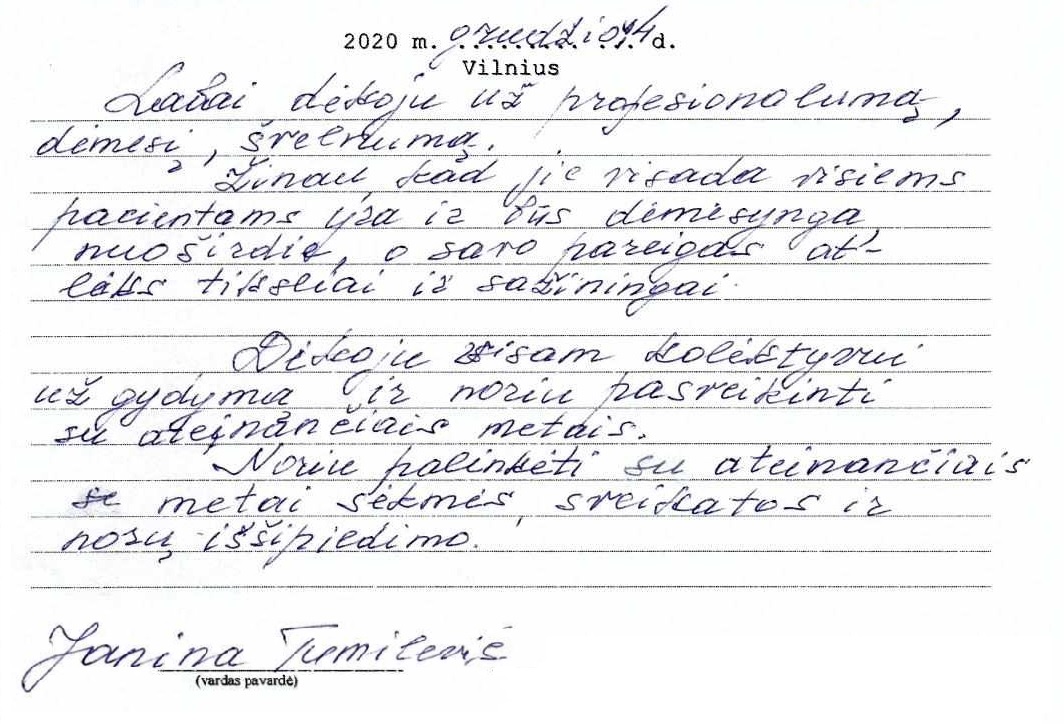 2020 m. gruodžio 14 d.
Vilnius
Labai dėkoju už profesionalumą,
dėmesį, švelnumą.
Žinau, kad jie visada visiems
pacientams yra ir bus dėmesynga
nuoširdie, o savo pareigas at-
liks tiksliai ir sąžiningai.
Dėkoju visam kolektyvui
už gydymą ir noriu pasveikinti
su ateįnančiais metais.
Noriu palinkėti su ateinančiais
metai sėkmės, sveikatos ir
norų išsipiedimo.
Janina Tumilevič
(vardas pavardė)